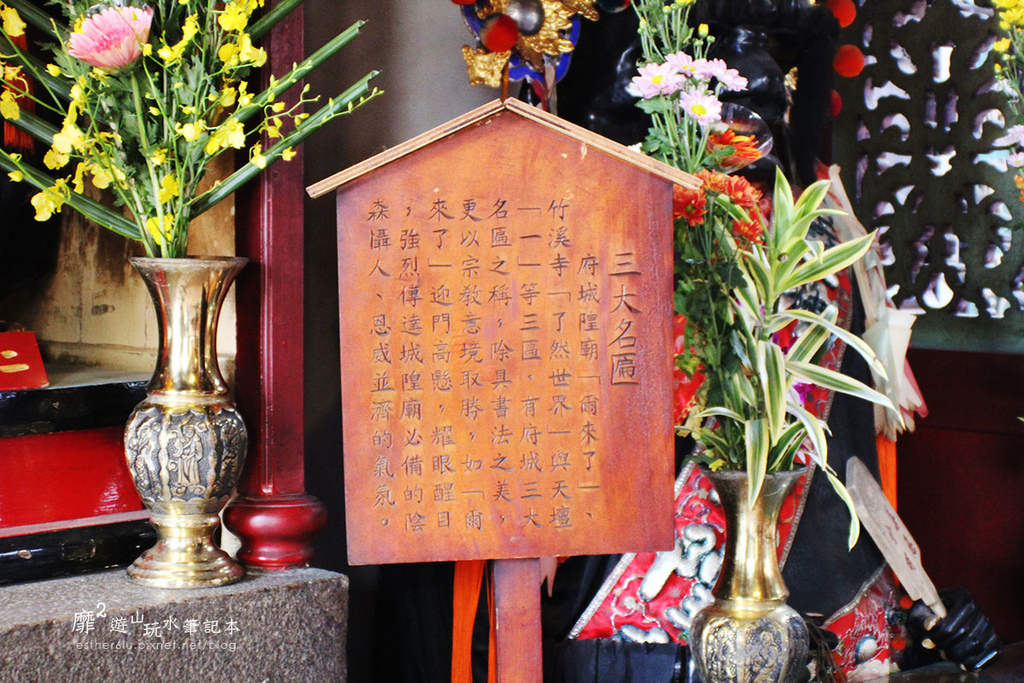 三大名匾
府城隍廟「爾來了」、
竹溪寺「了然世界」與天壇
「一」等三匾，有府城三大
名匾之稱，除具書法之美，
更以宗教意境取勝，如「爾
來了」迎門高懸，耀眼醒目
，強烈傳達城隍廟必備的陰
森懾人、恩威並濟的氣氛。
靡2遊山玩水筆記本
esther8lu.pixnet.net/blog